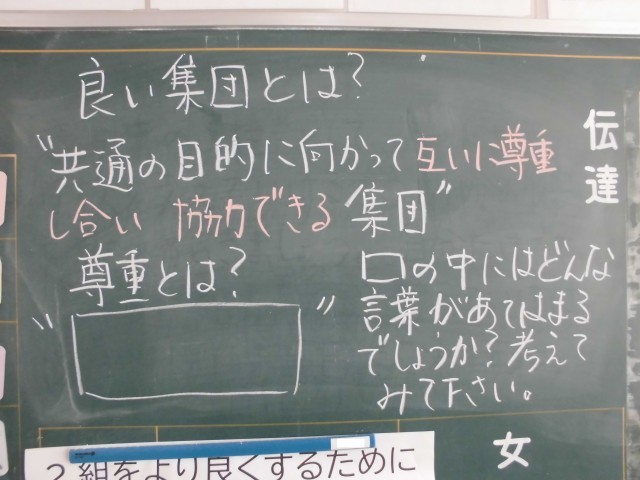 良い集団とは?
〝共通の目的に向かって互いに尊重
し合い 協力できる 集団〟
尊重とは?
〝 〟
口の中にはどんな
言葉があてはまる
でしょうか?考えて
みて下さい。
伝達
女
2組をより良くするために